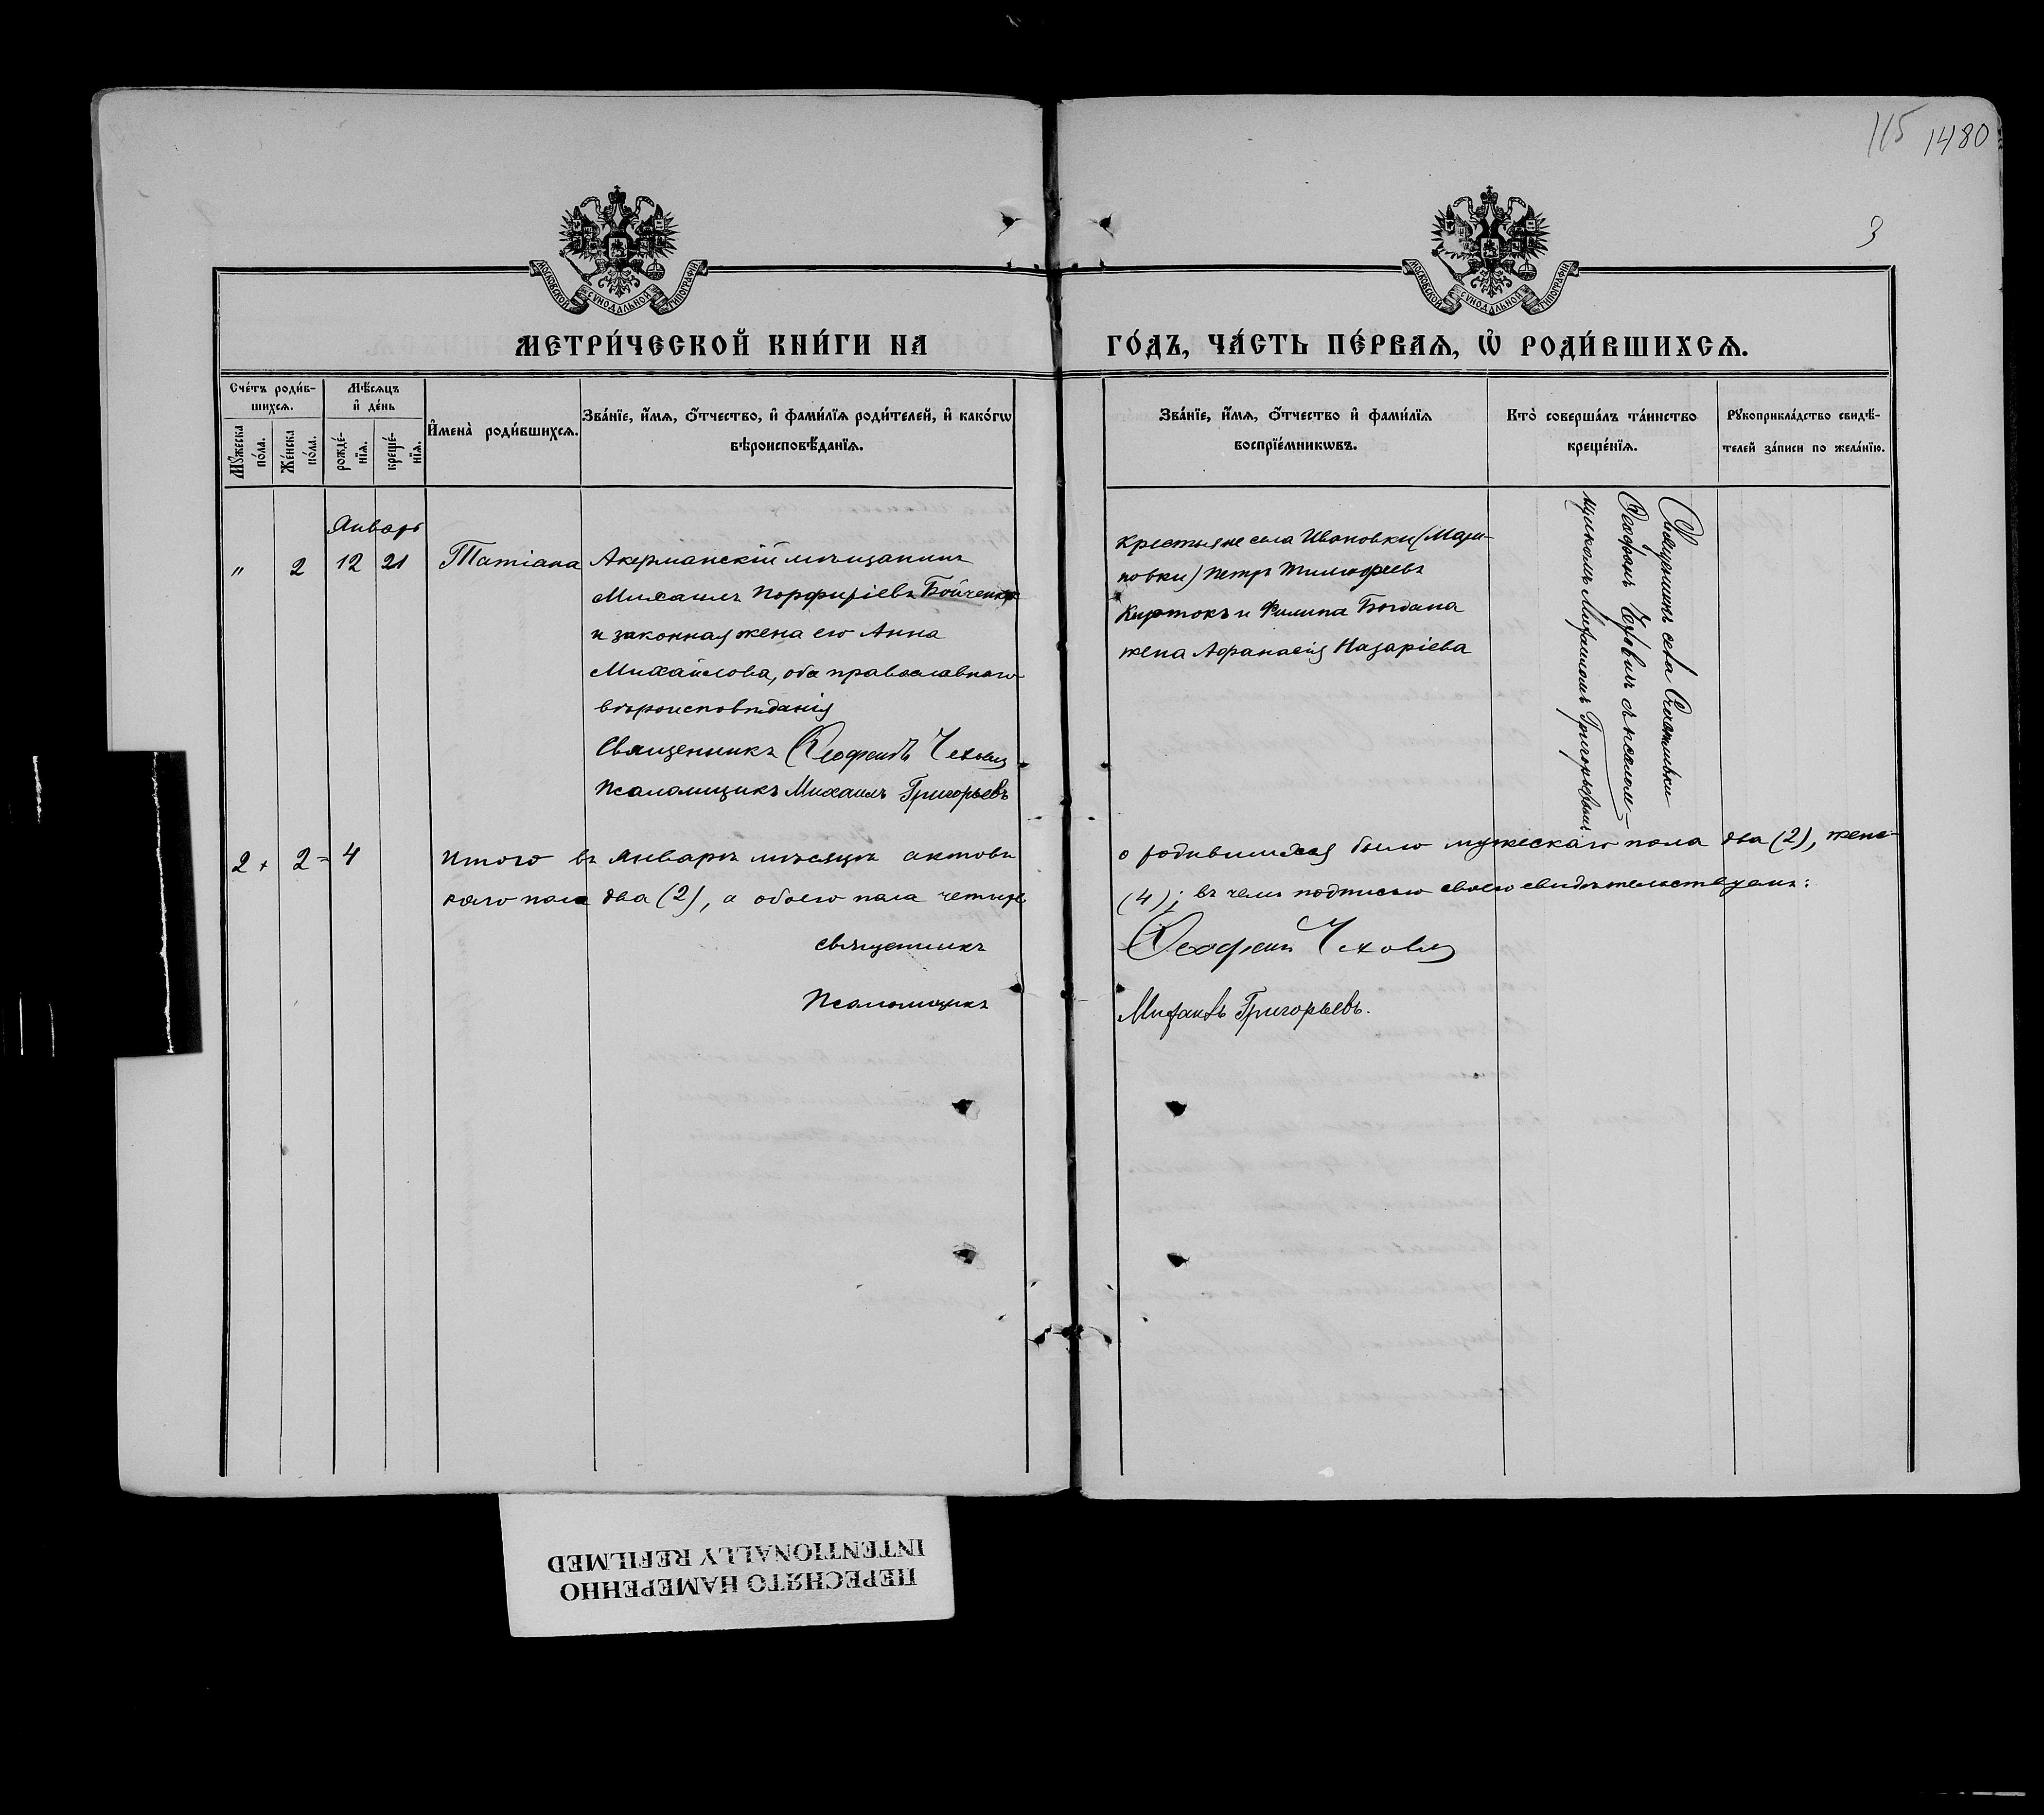 115 1480
3
МОСКОВСКОЙ СѴНОДАЛЬНОЙ ТИПОГРАФІИ
МОСКОВСКОЙ СѴНОДАЛЬНОЙ ТИПОГРАФІИ
МЕТРИ́ЧЕСКОЙ КНИ́ГИ НА
ГО́ДЪ, ЧА́СТЬ ПЕ́РВАѦ, Ѽ РОДИ́ВШИХСѦ.
Сче́тъ роди́в-
шихсѧ.
Мꙋ́жеска по́ла.
Же́нска по́ла.
Мѣ́сѧцъ
и҆ де́нь
рожде́-
нїѧ.
креще́-
нїѧ.
И҆мена̀ роди́вшихсѧ.
Зва́нїе, и҆́мѧ, ѻ҆́тчество, и҆ фами́лїѧ роди́телей, и҆ како́гѡ
вѣроисповѣ́данїѧ.
Зва́нїе, и҆́мѧ, ѻ҆́тчество и҆ фами́лїѧ
воспрїе́мникѡвъ.
Кто̀ соверша́лъ та́инство
креще́нїѧ.
Рꙋкоприкла́дство свидѣ́-
телей за́писи по жела́нїю.
Январь
" 2 12 21 Татіана
Акерманскій мѣщанинъ
Михаилъ Порфиріевъ Бойченко
и законная жена его Анна
Михайлова, оба православнаго
вѣроисповѣданія
Священникъ Ѳеофанъ Чехович
Псаломщикъ Михаилъ Григорьевъ
крестьяне села Ивановки (Мари-
новки) Петръ Тимофеевъ
Киртокъ и Филипа Богдана
жена Афанасія Назаріева
Священникъ села
Ѳеофанъ съ псалом-
щикомъ Михаиломъ Григорьевымъ.
2 + 2 = 4 Итого въ Январѣ мѣсяцѣ актовъ о родившихся было мужескаго пола два (2), женс-
каго пола два (2), а обоего пола четыре (4); въ чемъ подписью своею свидѣтельствуемъ:
священникъ Ѳеофанъ Чехович
Псаломщикъ Михаилъ Григорьевъ.
ПЕРЕСНЯТО НАМЕРЕННО
INTENTIONALLY REFILMED